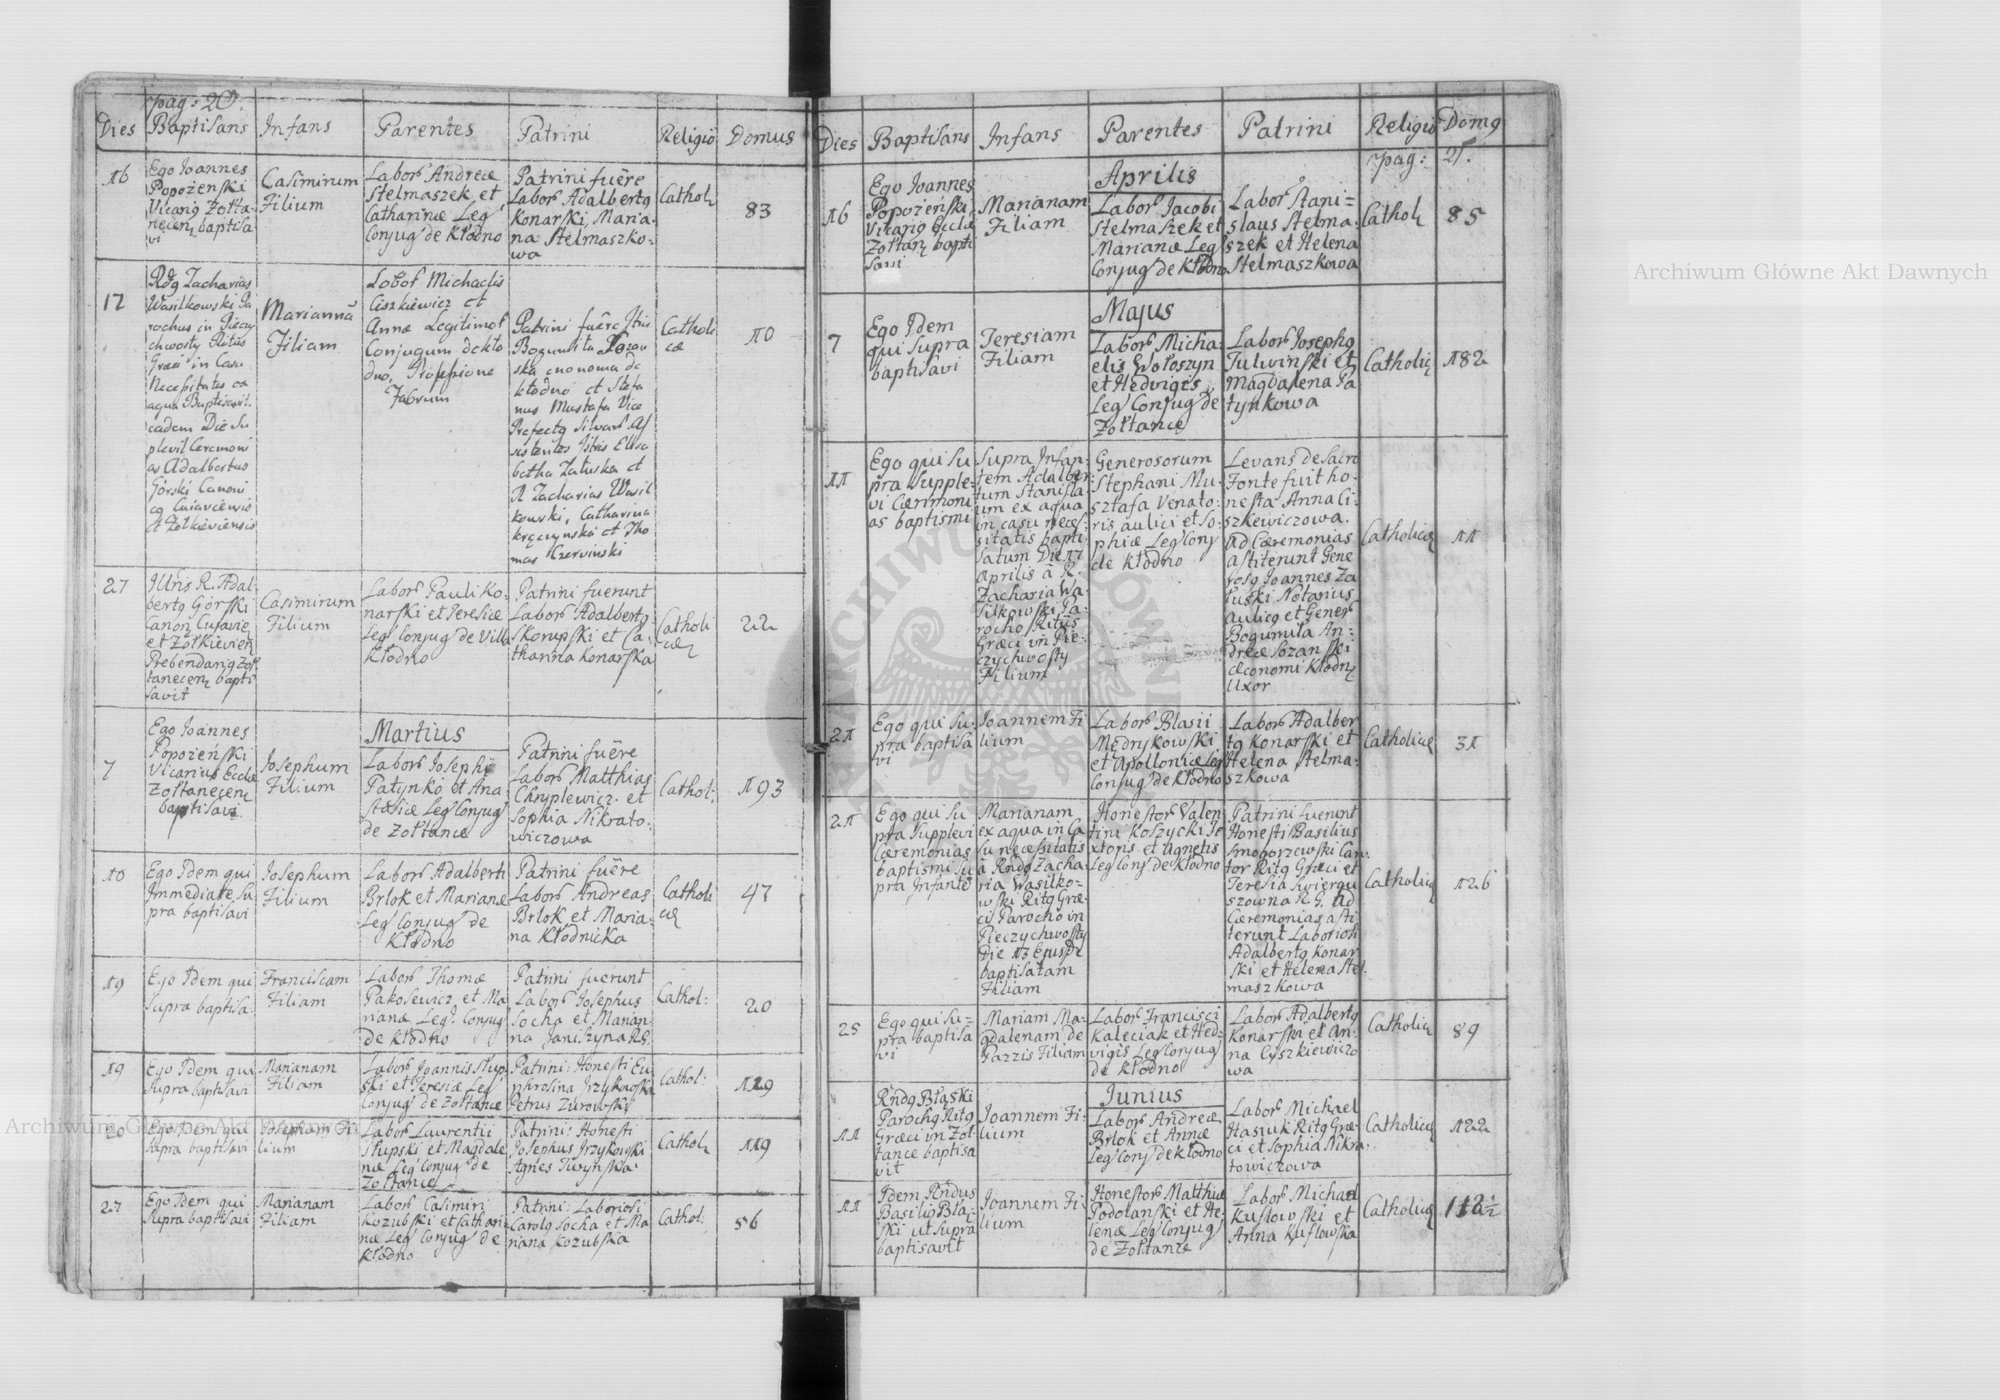 pag: 20.
Dies Baptisans Infans Parentes Patrini Religio Domus
16
Ego Joannes
Popożeński
Vicarig Żołta-
necenę baptisa-
vi
Casimirum
Filium
Labor Andreæ
Stelmaszek et
Catharinæ Leg
Conjug de Kłodno
Patrini fuēre
Labor Adalbertg
Konarski, Maria-
na Stelmaszko-
wa
Cathol
83
17
Rdg Zacharias
Wasilkowski Pa
rochus in Pieczy
chwosty Ritus
Græci in Casu
Necessitatis ex
aqua Baptisavit.
eadem Die Su
plevit Ceremoni
as Adalbertus
Górski Canoni
cg Cujaviensis
et Żołkieviensis
Marianna
Filiam
Labor Michaelis
Ciszkiewicz et
Annæ Legitimor
Conjugum de Kło
dno, Professione
Fabrum
Patrini fuēre
Bogumiła Łozan
ska œconoma de
Kłodno et Stefa
nus Mustafa Vice
Prefectg Silvar As
sistentes Elisa
betha Załuska et
R Zacharias Wasil
kowski, Catharina
Kręczynska et Tho
mas Czerwinski
Catholi
cæ
10
27
Illris R. Adal-
bertg Górski
Canon Cujavię
et Żółkievień
Prebendarig Żoł
tanecenę bapti
savit
Casimirum
Filium
Labor Pauli Ko-
narski et Teresiæ
Leg Conjug de Villa
Kłodno
Patrini fuerunt
Labor Adalbertg
Skorupski et Ca-
tharina Konarska
Catholi
cæ
22
Martius
7
Ego Joannes
Popożeński
Vicarius Eccle
Żołtanecenę
baptisavi
Josephum
Filium
Labor Josephi
Patynko et Ana
stasiæ Leg Conjug
de Żołtance
Patrini fuēre
Labor Matthias
Chryplewicz et
Sophia Nikrato-
wiczowa
Cathol:
193
10
Ego Idem qui
Immediate Su
pra baptisavi
Josephum
Filium
Labor Adalberti
Brlok et Marianæ
Leg Conjug de
Kłodno
Patrini fuēre
Labor Andreas
Brlok et Maria-
na Kłodnicka
Catholi
cæ
47
19
Ego Idem qui
supra baptisa-
Franciscam
Filiam
Labor Thomæ
Pakosewicz et Ma
rianæ Leg. Conjug
de Kłodno
Patrini fuerunt
Labor Josephus
Socha et Marian
na Janiszyna R.G.
Cathol:
20
19
Ego Idem qui
supra baptisavi
Marianam
Filiam
Labor Joannis Słup-
ski et Teresiæ Leg
Conjug de Żołtance
Patrini: Honesti Eu
phrosina Jrzykowska
Petrus Żurowski
Cathol:
129
20
Ego Idem qui
supra baptisavi
Josephum Fi
lium
Labor Laurentii
Słupski et Magdale
næ Leg Conjug de
Żołtance
Patrini: Honesti
Josephus Jrzykowski
Agnes Tuzynska
Cathol
119
27
Ego Idem qui
supra baptisavi
Marianam
Filiam
Labor Casimiri
Kozubski et Cathari
næ Leg Conjug de
Kłodno
Patrini: Laboriosi
Carolg Socha et Ma
riana Kozubska
Cathol:
56
Dies Baptisans Infans Parentes Patrini Religio Domg
pag: 21.
Aprilis
16
Ego Joannes
Popożeński
Vicarig Eccliæ
Żołtanę bapti
savi
Marianam
Filiam
Labor Jacobi
Stelmaszek et
Marianæ Leg
Conjug de Kłodno
Labor Stani=
slaus Stelma-
szek et Helena
Stelmaszkowa
Cathol
85
Majus
7
Ego Idem
qui supra
baptisavi
Teresiam
Filiam
Labor Micha-
elis Wołoszyn
et Hedvigis
Leg Conjug de
Żołtance
Labor Josephg
Tulwinski et
Magdalena Pa
tynkowa
Catholię
182
11
Ego qui Su
pra Supple-
vi Cærimoni
as baptismi
Supra Infan-
tem Adalber-
tum Stanisla-
um ex aqua
in casu neces-
sitatis bapti-
satum Die 17
Aprilis à R.
Zacharia Wa
silkowski Pa-
rocho Ritûs
Græci in Pie-
czychwosty
Filium
Generosorum
Stephani Mu-
sztafa Venato-
ris aulici et So-
phiæ Leg Conj
de Kłodno
Levans de Sacro
Fonte fuit ho-
nesta Anna Ci-
szkewiczowa.
ad Cæremonias
astiterunt Gene
rosg Joannes Za
łuski Notarius
Aulicg et Gener
Bogumiła An-
dreæ Łozanski
œconomi Kłodnę
Uxor
Catholicæ
11
21
Ego qui Su-
pra baptisa
vi
Joannem Fi
lium
Labor Blasii
Mędrykowski
et Apolloniæ Leg
Conjug de Kłodno
Labor Adalber
tg Konarski et
Helena Stelma-
szkowa
Catholicæ
31
21
Ego qui Su
pra Supplevi
Cæremonias
baptismi Su
pra Infante
Marianam
ex aqua in Ca
su necessitatis
à Rndg Zacha-
ria Wasilko-
wski Ritg Græ-
ci Parocho in
Pieczychwosty
Die 13 Ejusde
baptisatam
Filiam
Honestor Valen
tini Koszycki Te
xtoris et Agnetis
Leg Conj de Kłodno
Patrini fuerunt
Honesti Basilius
Smogorzewski Can-
tor Ritg Græci et
Teresia Swiergu
szowna R G. ad
Cæremonias asti
terunt Laboriosi
Adalbertg Konar
ski et Helena Stel-
maszkowa
Catholicę
126
25
Ego qui Su=
pra baptisa
vi
Mariam Ma-
gdalenam de
Pazzis Filiam
Labor Francisci
Kaleciak et Hed-
vigis Leg Conjug
de Kłodno
Labor Adalbertg
Konarski et An-
na Cyszkiewiczo
wa
Catholicę
89
Junius
11
Rndg Błąski
Parochg Ritg
Græci in Żoł-
tance baptisa
vit
Joannem Fi-
lium
Labor Andreæ
Brlok et Annæ
Leg Conj de Kłodno
Labor Michael
Hasiuk Ritg Græ-
ci et Sophia Nikra
towiczowa
Catholicę
122
11
Idem Rndus
Basilig Błą-
ski ut supra
baptisavit
Joannem Fi-
lium
Honestor Matthiæ
Podolanski et He-
lenæ Leg Conjug
de Żołtance
Labor Michael
Kusłowski et
Anna Kusłowska
Catholicę
112½
Archiwum Główne Akt Dawnych
Archiwum Główne Akt Dawnych